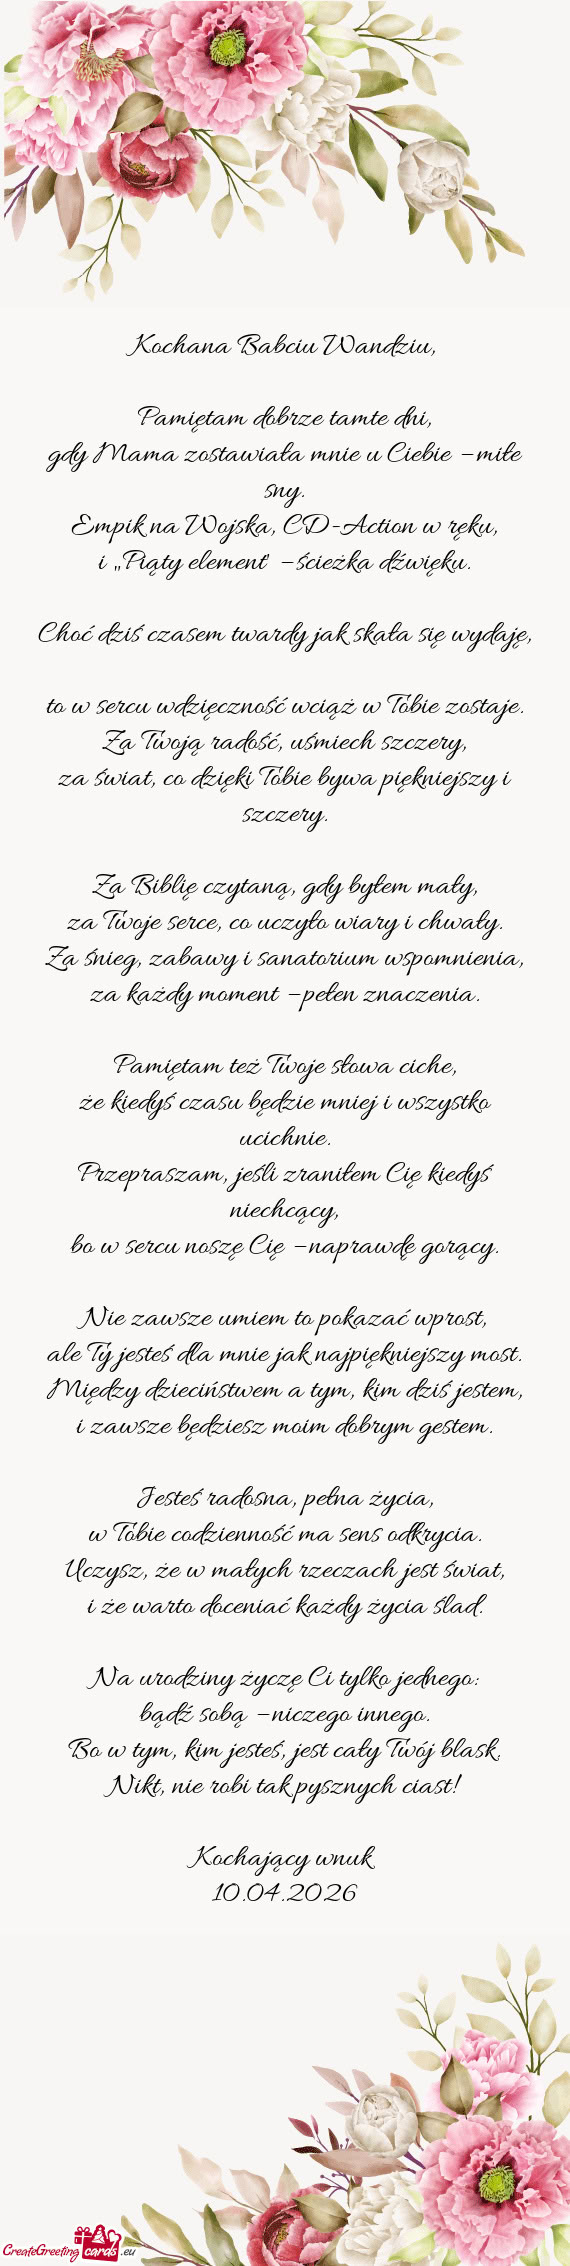 Kochana Babciu Wandziu,
Pamiętam dobrze tamte dni,
gdy Mama zostawiała mnie u Ciebie – miłe
sny.
Empik na Wojska, CD-Action w ręku,
i „Piąty element” – ścieżka dźwięku.
Choć dziś czasem twardy jak skała się wydaję,
to w sercu wdzięczność wciąż w Tobie zostaje.
Za Twoją radość, uśmiech szczery,
za świat, co dzięki Tobie bywa piękniejszy i
szczery.
Za Biblię czytaną, gdy byłem mały,
za Twoje serce, co uczyło wiary i chwały.
Za śnieg, zabawy i sanatorium wspomnienia,
za każdy moment – pełen znaczenia.
Pamiętam też Twoje słowa ciche,
że kiedyś czasu będzie mniej i wszystko
ucichnie.
Przepraszam, jeśli zraniłem Cię kiedyś
niechcący,
bo w sercu noszę Cię – naprawdę gorący.
Nie zawsze umiem to pokazać wprost,
ale Ty jesteś dla mnie jak najpiękniejszy most.
Między dzieciństwem a tym, kim dziś jestem,
i zawsze będziesz moim dobrym gestem.
Jesteś radosna, pełna życia,
w Tobie codzienność ma sens odkrycia.
Uczysz, że w małych rzeczach jest świat,
i że warto doceniać każdy życia ślad.
Na urodziny życzę Ci tylko jednego:
bądź sobą – niczego innego.
Bo w tym, kim jesteś, jest cały Twój blask.
Nikt, nie robi tak pysznych ciast!
Kochający wnuk
10.04.2026
CreateGreetingcards.eu